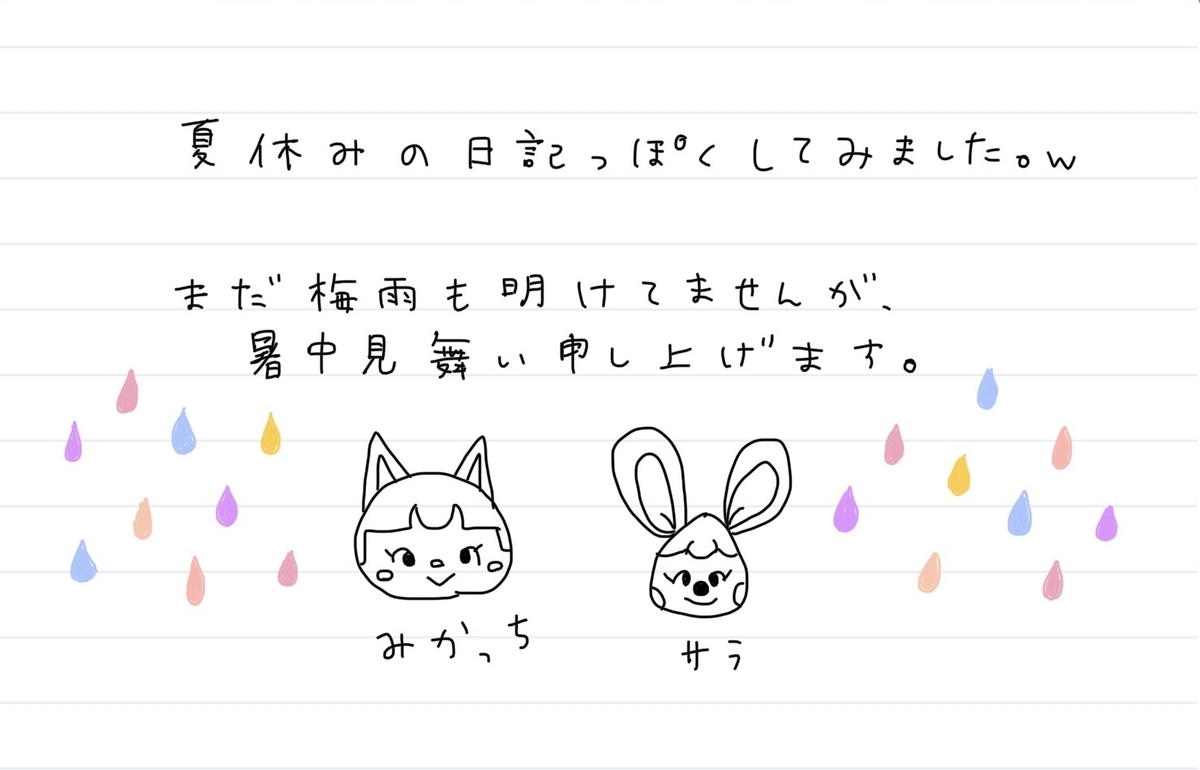 夏休みの日記っぽくしてみました。w
まだ梅雨も明けてませんが、
暑中見舞い申し上げます。
みかっち
サラ